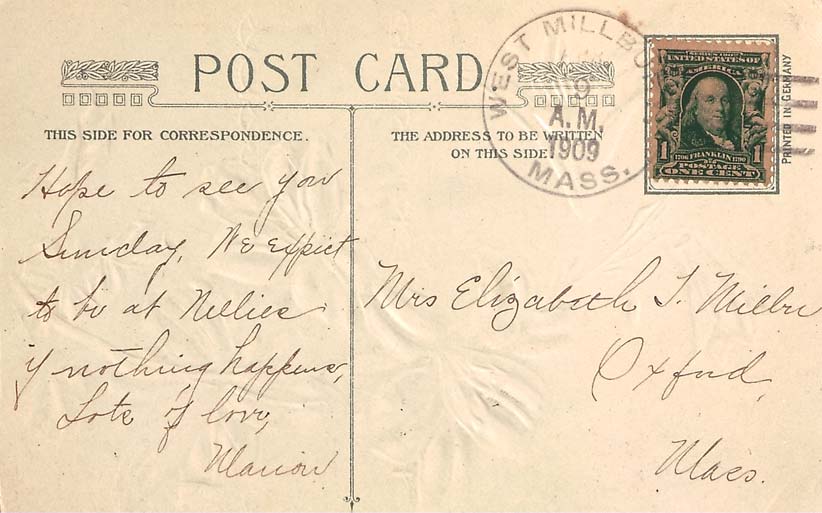 POST CARD
THIS SIDE FOR CORRESPONDENCE.
THE ADDRESS TO BE WRITTEN
ON THIS SIDE
WEST MILLBU
9
A.M.
1909
MASS.
SERIES 1902
UNITED STATES OF
AMERICA
1706 FRANKLIN 1790
1 POSTAGE 1
ONE CENT
PRINTED IN GERMANY
Hope to see you
Sunday. We expect
to be at Nellies
if nothing happens,
Lots of love,
Marion
Mrs Elizabeth
Oxford,
Mass.